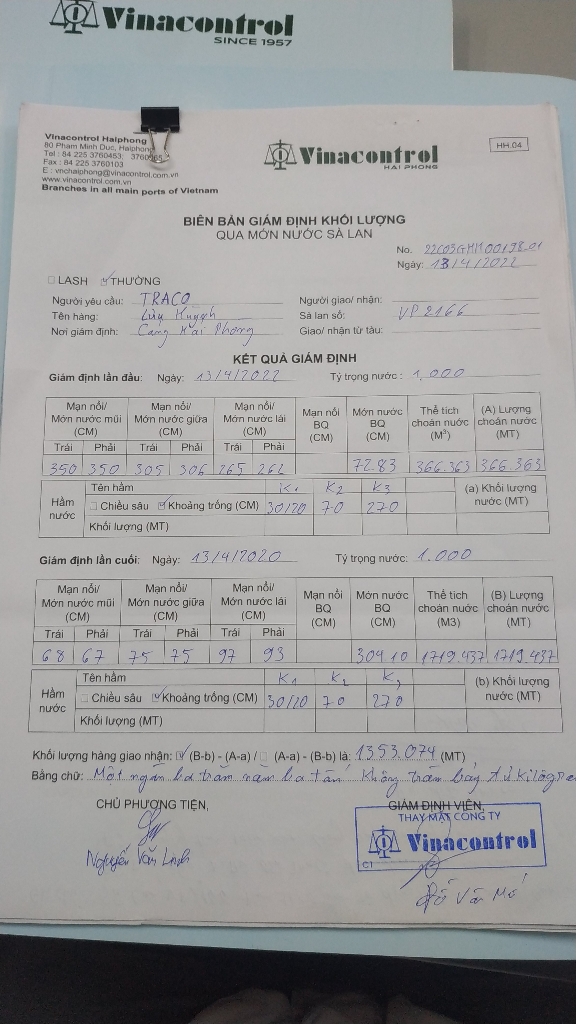 Vinacontrol
SINCE 1957
Vinacontrol Haiphong
80 Pham Minh Duc, Haiphong
Tel : 84 225 3760453; 3760265
Fax : 84 225 3760103
E : vnchaiphong@vinacontrol.com.vn
www.vinacontrol.com.vn
Branches in all main ports of Vietnam
Vinacontrol
HAI PHONG
HH.04
BIÊN BẢN GIÁM ĐỊNH KHỐI LƯỢNG
QUA MỚN NƯỚC SÀ LAN
No. 22C03GHH00198.01
Ngày: 13/4/2022
LASH THƯỜNG
Người yêu cầu: TRACO Người giao/ nhận:
Tên hàng: Lưu Huỳnh Sà lan số: VP 2166
Nơi giám định: Cảng Hải Phòng Giao/ nhận từ tàu:
KẾT QUẢ GIÁM ĐỊNH
Giám định lần đầu: Ngày: 13/4/2022 Tỷ trọng nước : 1,000
Mạn nổi/ Mạn nổi/ Mạn nổi/ Mạn nổi Mớn nước Thể tích (A) Lượng
Mớn nước mũi Mớn nước giữa Mớn nước lái BQ BQ choán nước choán nước
(CM) (CM) (CM) (CM) (CM) (M³) (MT)
Trái Phải Trái Phải Trái Phải
350 350 305 306 265 262 72.83 366.363 366.363
Hầm nước Tên hầm K1 K2 K3 (a) Khối lượng nước (MT)
Chiều sâu Khoảng trống (CM) 30/20 70 270
Khối lượng (MT)
Giám định lần cuối: Ngày: 13/4/2020 Tỷ trọng nước: 1.000
Mạn nổi/ Mạn nổi/ Mạn nổi/ Mạn nổi Mớn nước Thể tích (B) Lượng
Mớn nước mũi Mớn nước giữa Mớn nước lái BQ BQ choán nước choán nước
(CM) (CM) (CM) (CM) (CM) (M3) (MT)
Trái Phải Trái Phải Trái Phải
68 67 75 75 97 93 304.10 1719.437 1719.437
Hầm nước Tên hầm K1 K2 K3 (b) Khối lượng nước (MT)
Chiều sâu Khoảng trống (CM) 30/20 70 270
Khối lượng (MT)
Khối lượng hàng giao nhận: (B-b) - (A-a) / (A-a) - (B-b) là: 1353.074 (MT)
Bằng chữ: Một ngàn ba trăm năm ba tấn không trăm bảy tư kilôgram
CHỦ PHƯƠNG TIỆN, GIÁM ĐỊNH VIÊN,
THAY MẶT CÔNG TY
Vinacontrol
C1
Nguyễn Văn Linh
Đỗ Văn